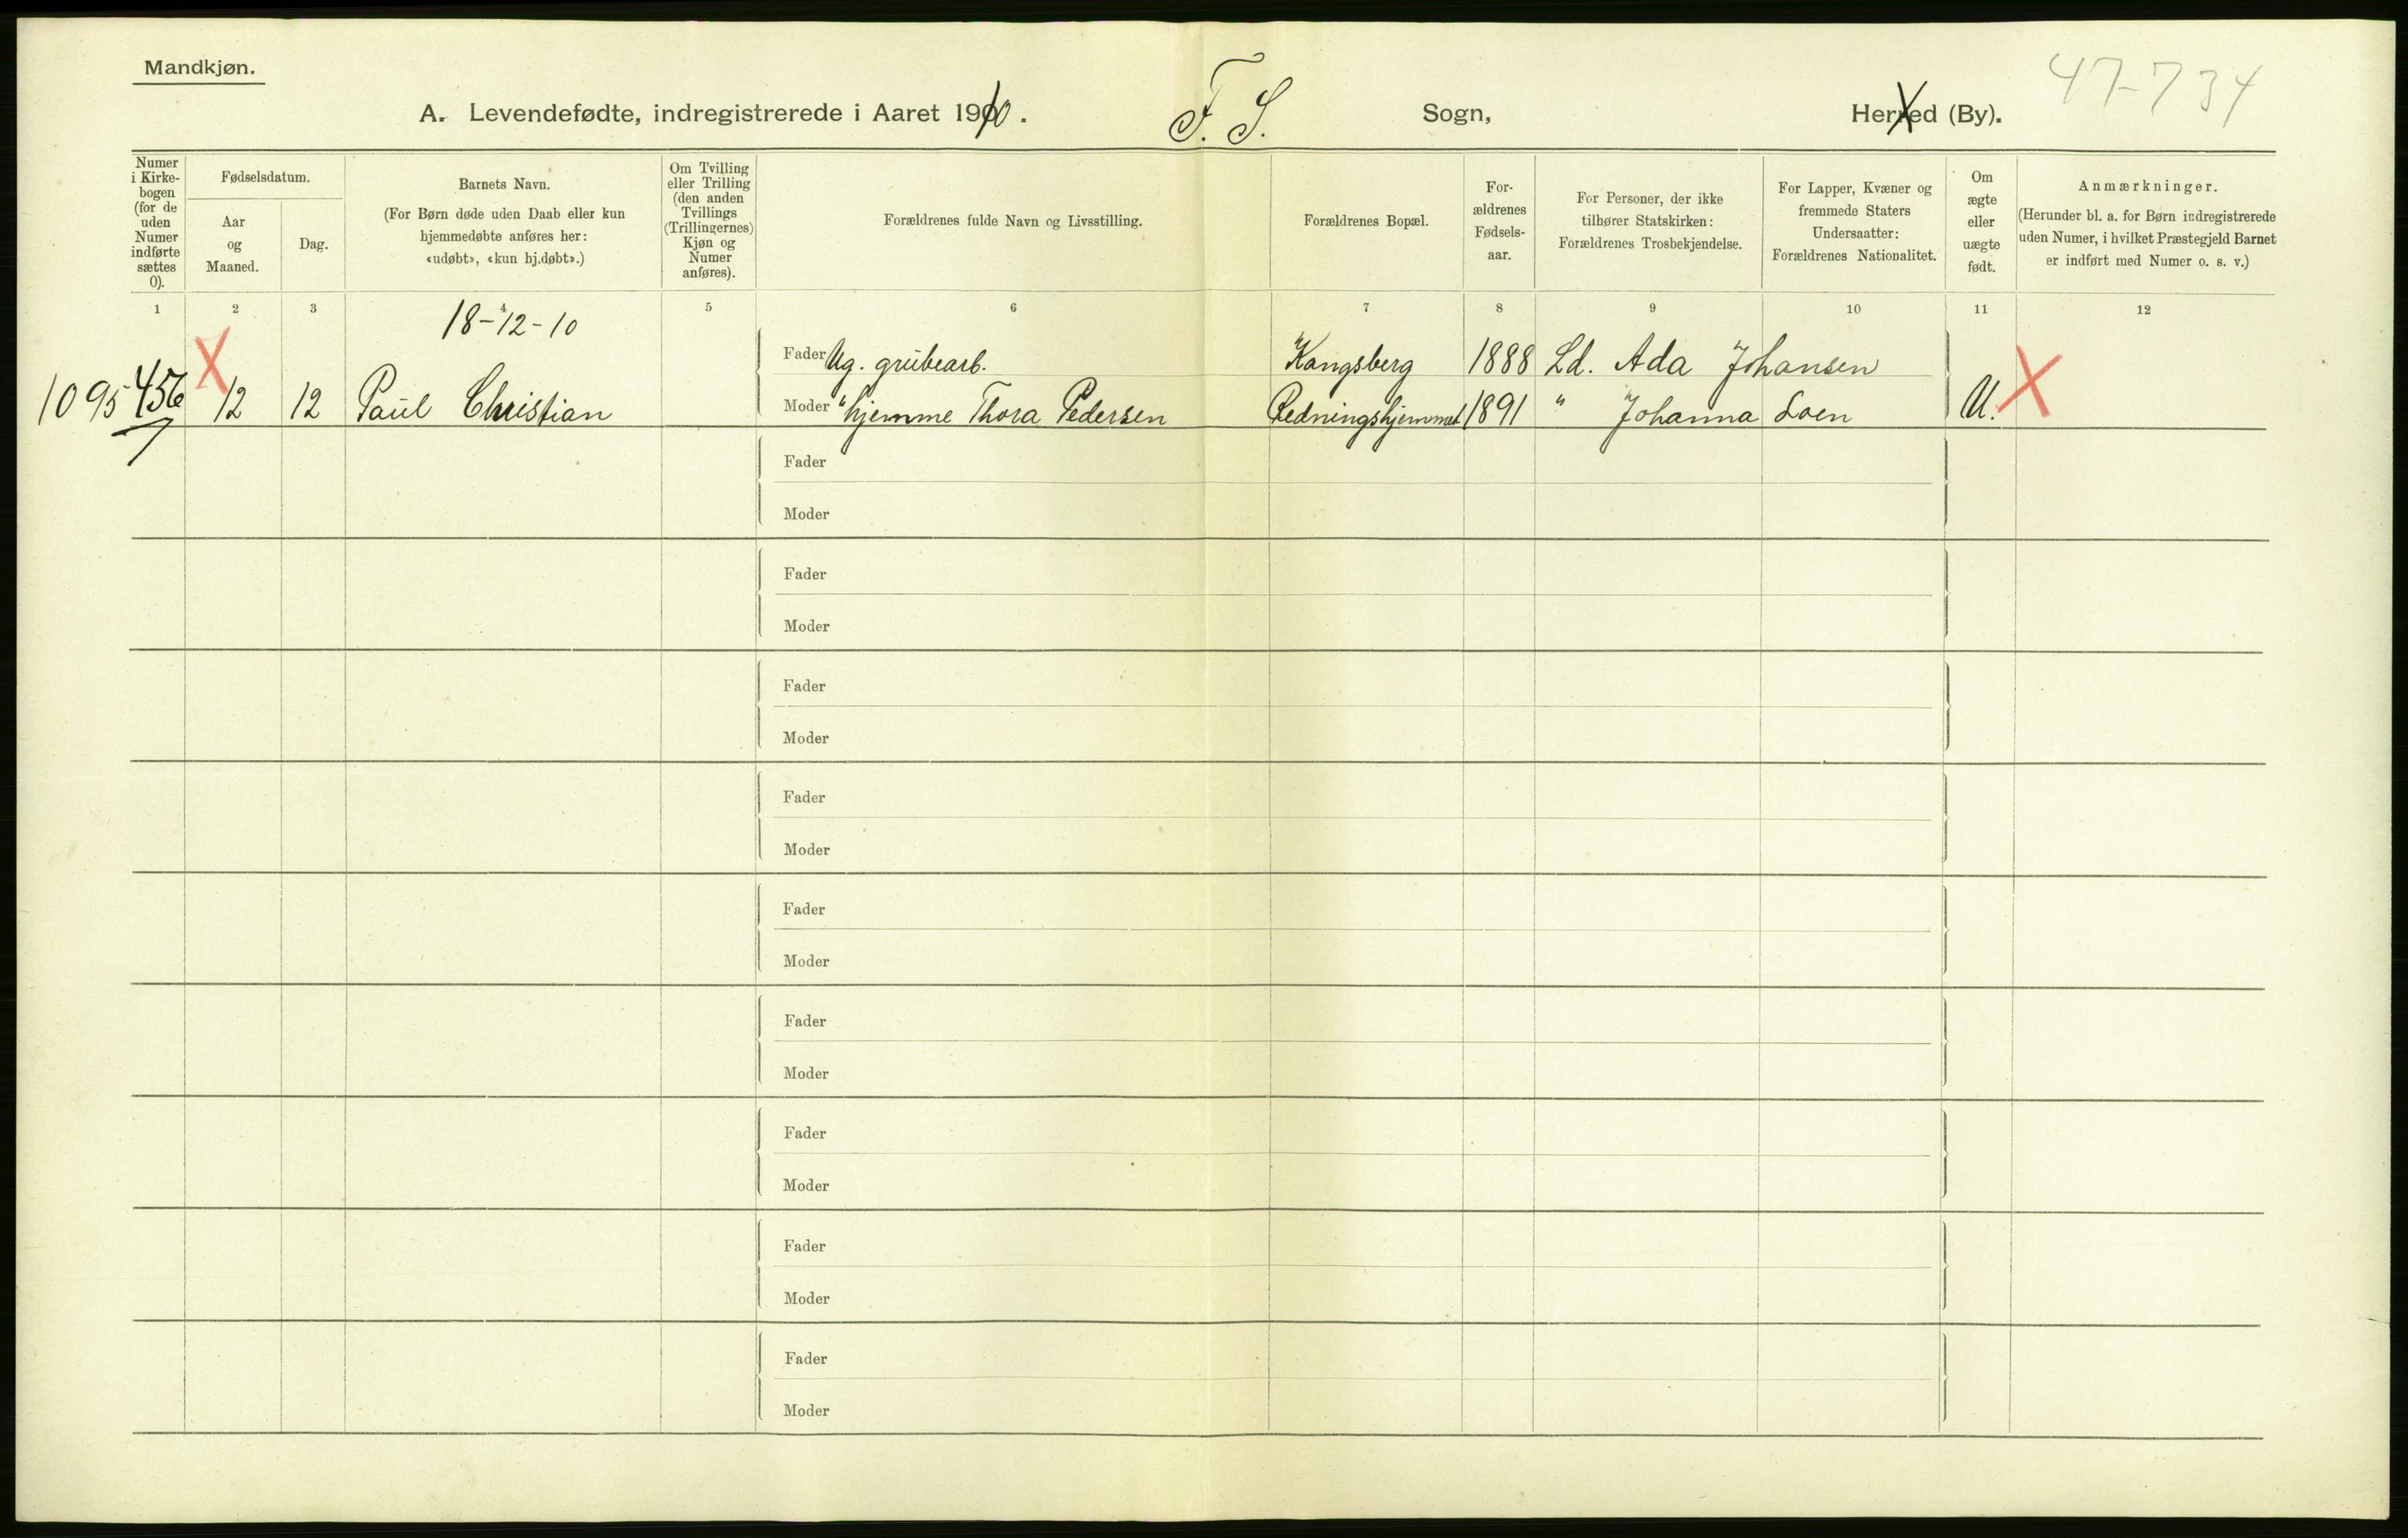 Mandkjøn.
47-734
A. Levendefødte, indregistrerede i Aaret 1910. F. S. Sogn, Herred (By).
Numer i Kirke-bogen (for de uden Numer indførte sættes 0).
Fødselsdatum.
Aar og Maaned.
Dag.
Barnets Navn.
(For Børn døde uden Daab eller kun hjemmedøbte anføres her: «udøbt», «kun hj.døbt».)
Om Tvilling eller Trilling (den anden Tvillings (Trillingernes) Kjøn og Numer anføres).
Forældrenes fulde Navn og Livsstilling.
Forældrenes Bopæl.
For-ældrenes Fødsels-aar.
For Personer, der ikke tilhører Statskirken: Forældrenes Trosbekjendelse.
For Lapper, Kvæner og fremmede Staters Undersaatter: Forældrenes Nationalitet.
Om ægte eller uægte født.
Anmærkninger.
(Herunder bl. a. for Børn indregistrerede uden Numer, i hvilket Præstegjeld Barnet er indført med Numer o. s. v.)
1 2 3 4 5 6 7 8 9 10 11 12
18-12-10
Fader Ug. grubearb. Kongsberg 1888 Ld. Ada Johansen
1095 456 12 12 Paul Christian Moder " hjemme Thora Pedersen Redningshjemmet 1891 " Johanna Loen U.
Fader
Moder
Fader
Moder
Fader
Moder
Fader
Moder
Fader
Moder
Fader
Moder
Fader
Moder
Fader
Moder
Fader
Moder